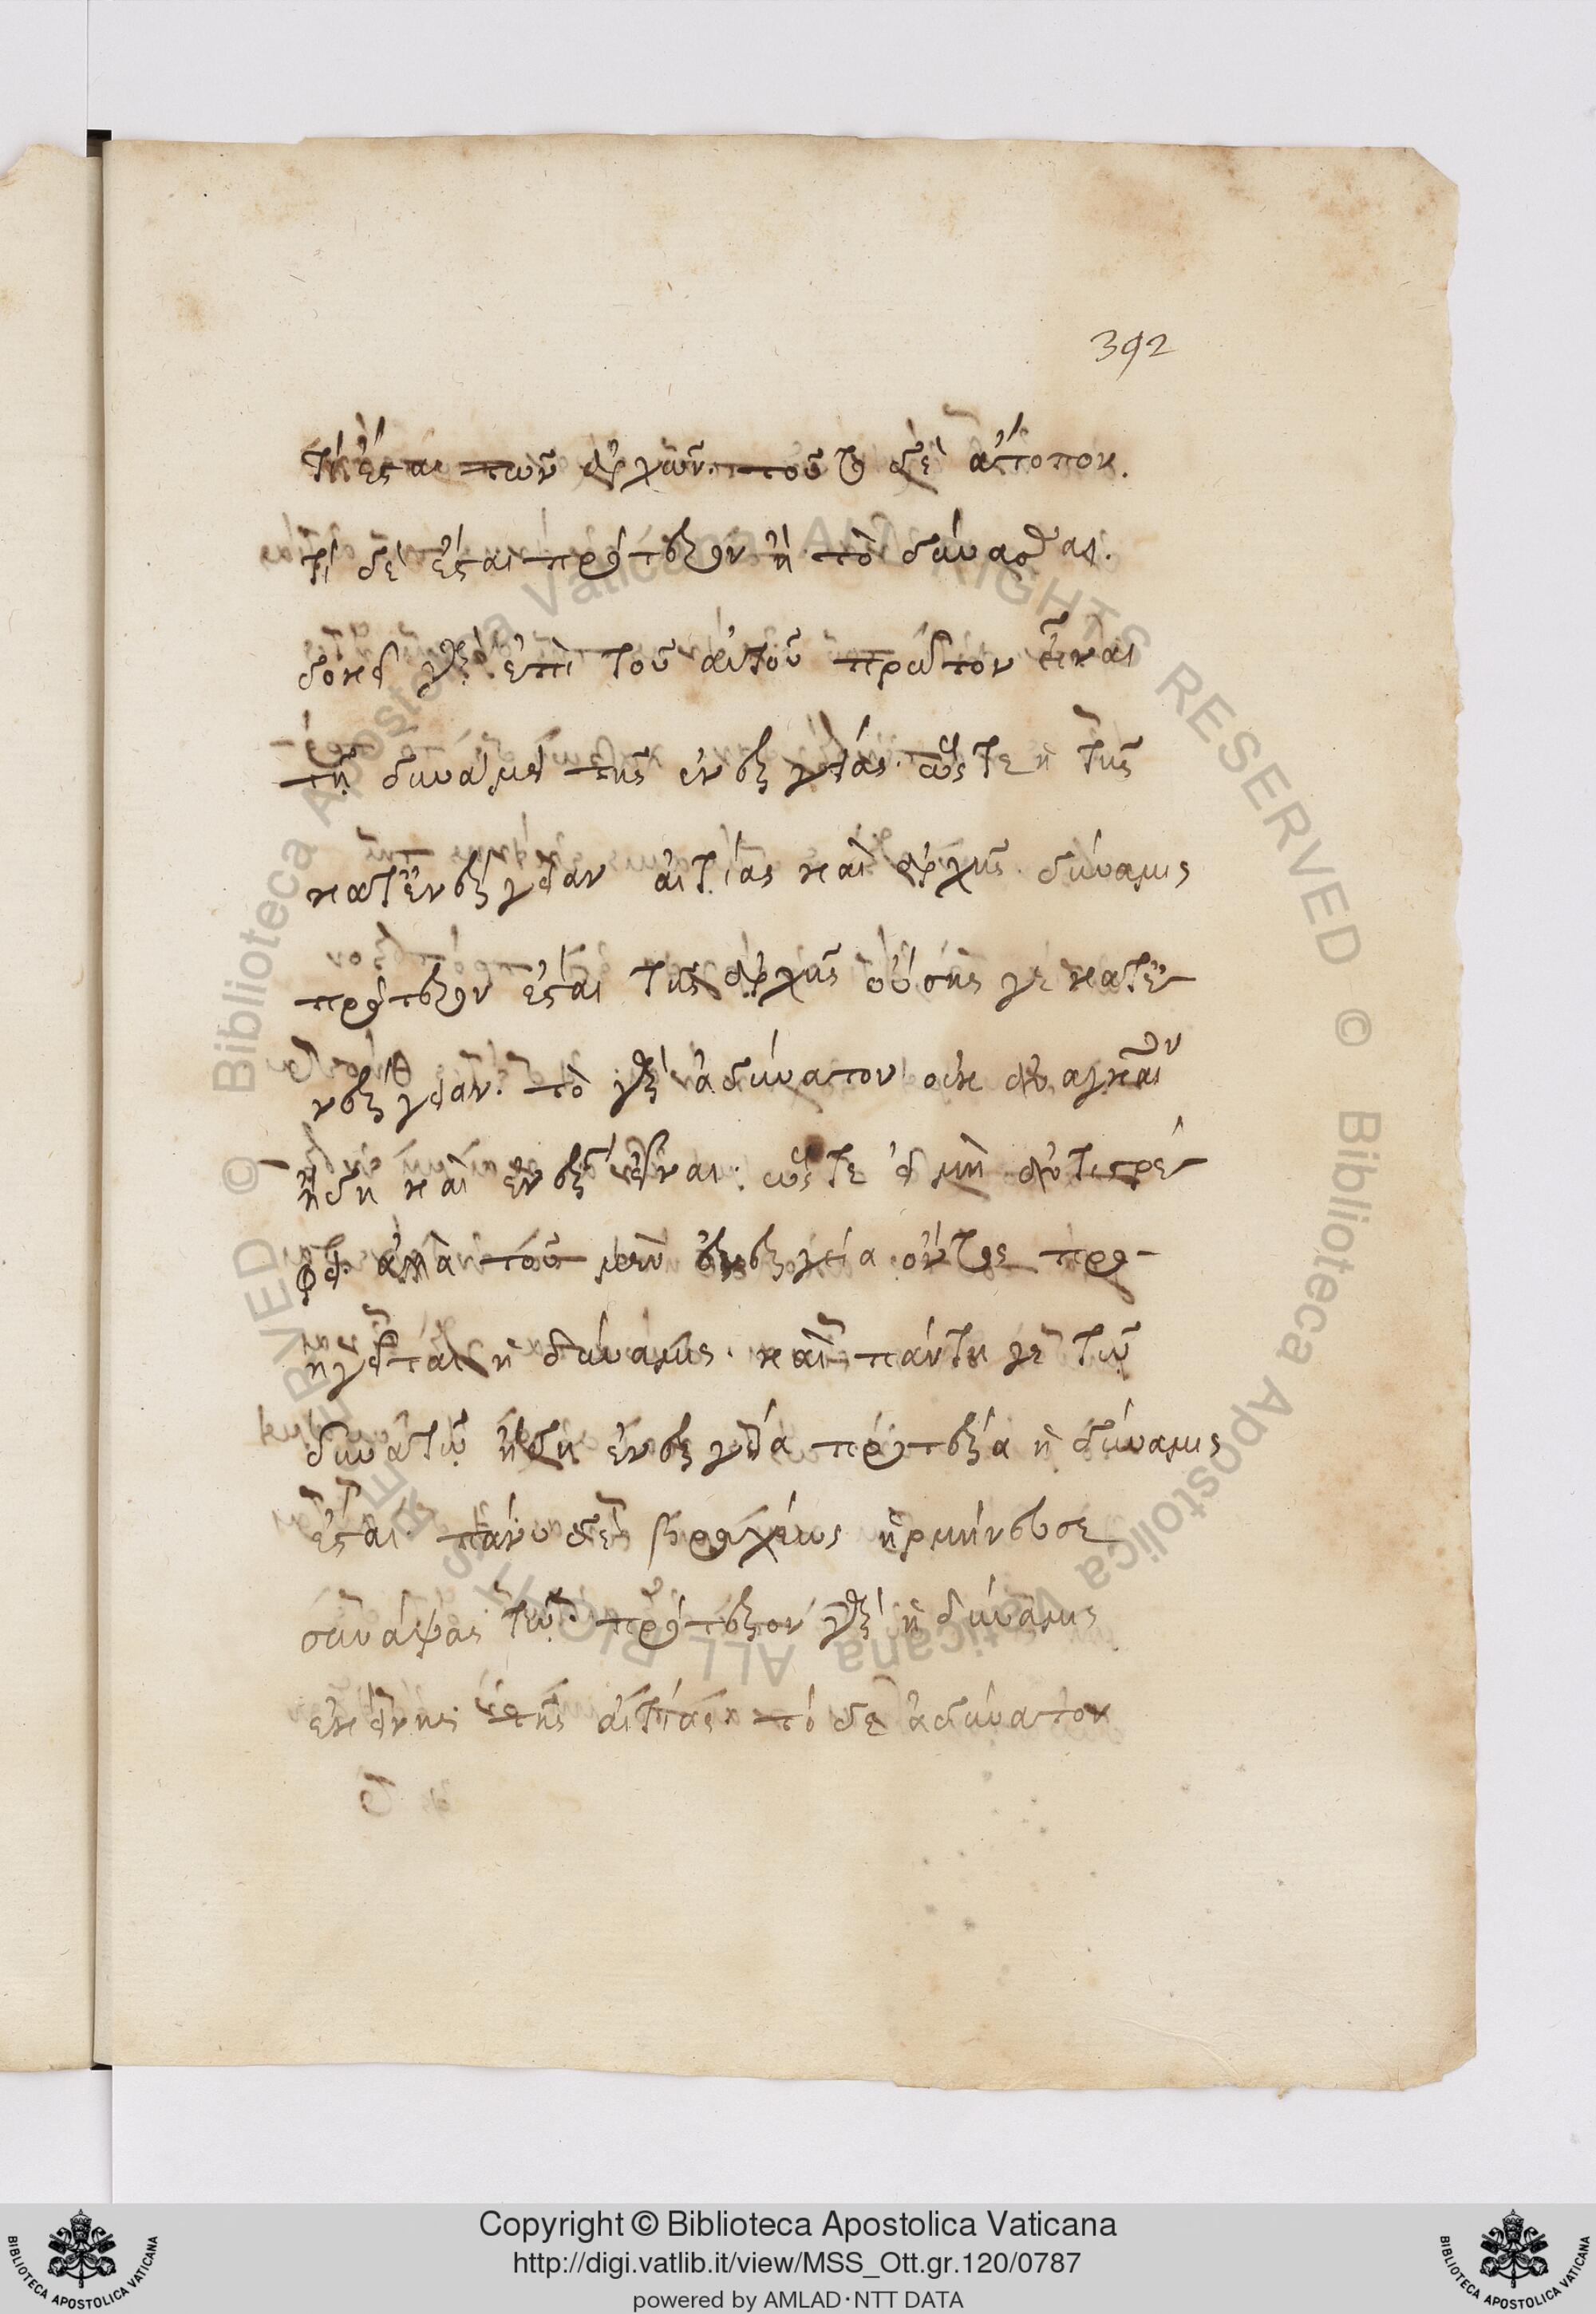 392
τί ἔσται τῶν ἀρχῶν. τοῦτο δὲ ἄτοπον.
τί δὲ ἔσται πρότερον ἢ τὸ δύνασθαι.
δοκεῖ γὰρ ἐπὶ τοῦ αὐτοῦ πρῶτον εἶναι
τῇ δυνάμει τῆς ἐνεργείας. ὥστε ἡ τῆς
κατ' ἐνέργειαν αἰτίας καὶ ἀρχῆς δύναμις
πρότερον ἔσται τῆς ἀρχῆς οὔσης γε κατ' ἐ-
νέργειαν. τὸ γὰρ ἀδύνατον οὐκ ἀναγκαῖον
ἤδη καὶ εἶναι. ὥστε εἰ μὴ ἀντιστρέ-
φει. ἀλλὰ τοῦ μὲν ἐνεργείᾳ ὄντος προ-
ηγεῖται ἡ δύναμις. καὶ πάντη γε τῷ
δυνατῷ ἤδη ἐνέργεια προτέρα ἡ δύναμις
ἔσται. πάνυ δὲ βραχέως ἡρμήνευσε
συνάψας τῷ. πρότερον γὰρ ἡ δύναμις
ἐκείνης τῆς αἰτίας. τὸ δὲ ἀδύνατον
Copyright © Biblioteca Apostolica Vaticana
http://digi.vatlib.it/view/MSS_Ott.gr.120/0787
powered by AMLAD·NTT DATA
BIBLIOTECA APOSTOLICA VATICANA
BIBLIOTECA APOSTOLICA VATICANA
© Biblioteca Apostolica Vaticana ALL RIGHTS RESERVED
© Biblioteca Apostolica Vaticana ALL RIGHTS RESERVED